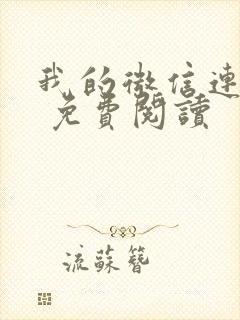 我的微信連
免費閱讀
流蘇簪